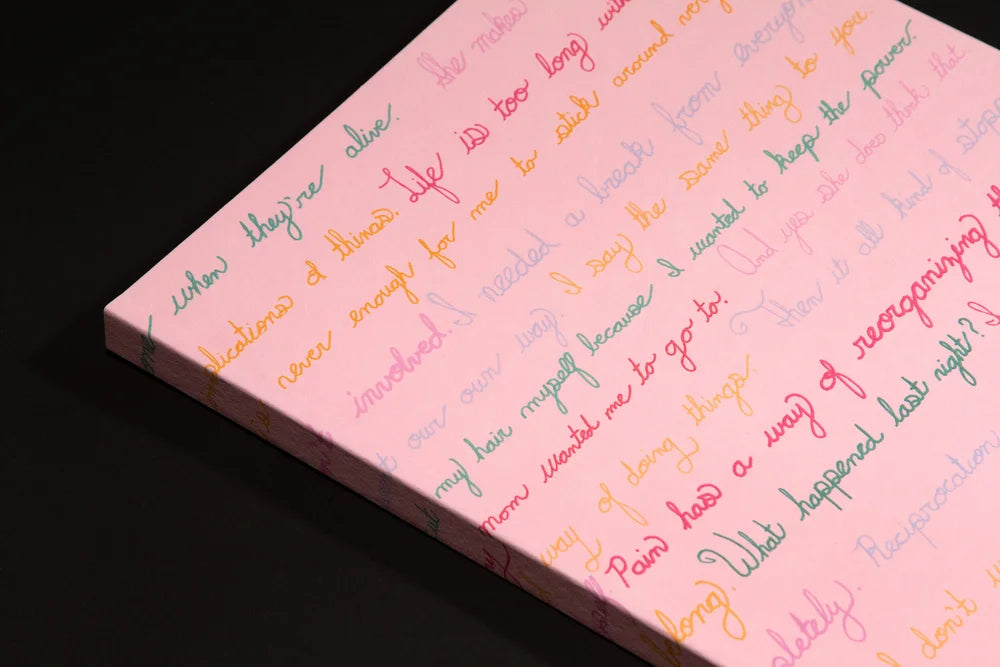 when they're alive. She makes
plications of things. Life is too long with
is never enough for me to stick around very
involved. I needed a break from everyon
our own way. I say the same thing to you.
my hair myself because I wanted to keep the power.
My mom wanted me to go to. And yes she does think that
way of doing things. Then it all kind of stops
Pain has a way of reorganizing th
long. What happened last night? I
pletely. Reciprocation
I don't